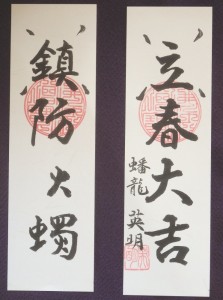 立春大吉
蟠龍 英明
鎮防火燭